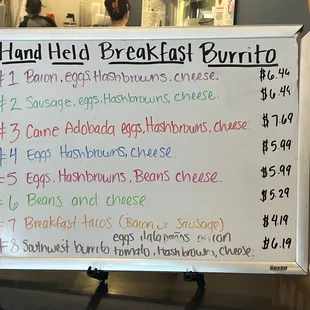 Hand Held Breakfast Burrito
#1 Bacon, eggs, Hashbrowns, cheese. $6.44
#2 Sausage, eggs, Hashbrowns, cheese. $6.44
#3 Carne Adobada eggs, Hashbrowns, cheese. $7.69
#4 Eggs Hashbrowns, cheese. $5.99
#5 Eggs, Hashbrowns, Beans cheese. $5.99
#6 Beans and cheese. $5.29
#7 Breakfast tacos (Bacon or Sausage) $4.19
eggs jalapeños onion
#8 Southwest burrito tomato, Hashbrowns, cheese. $6.19